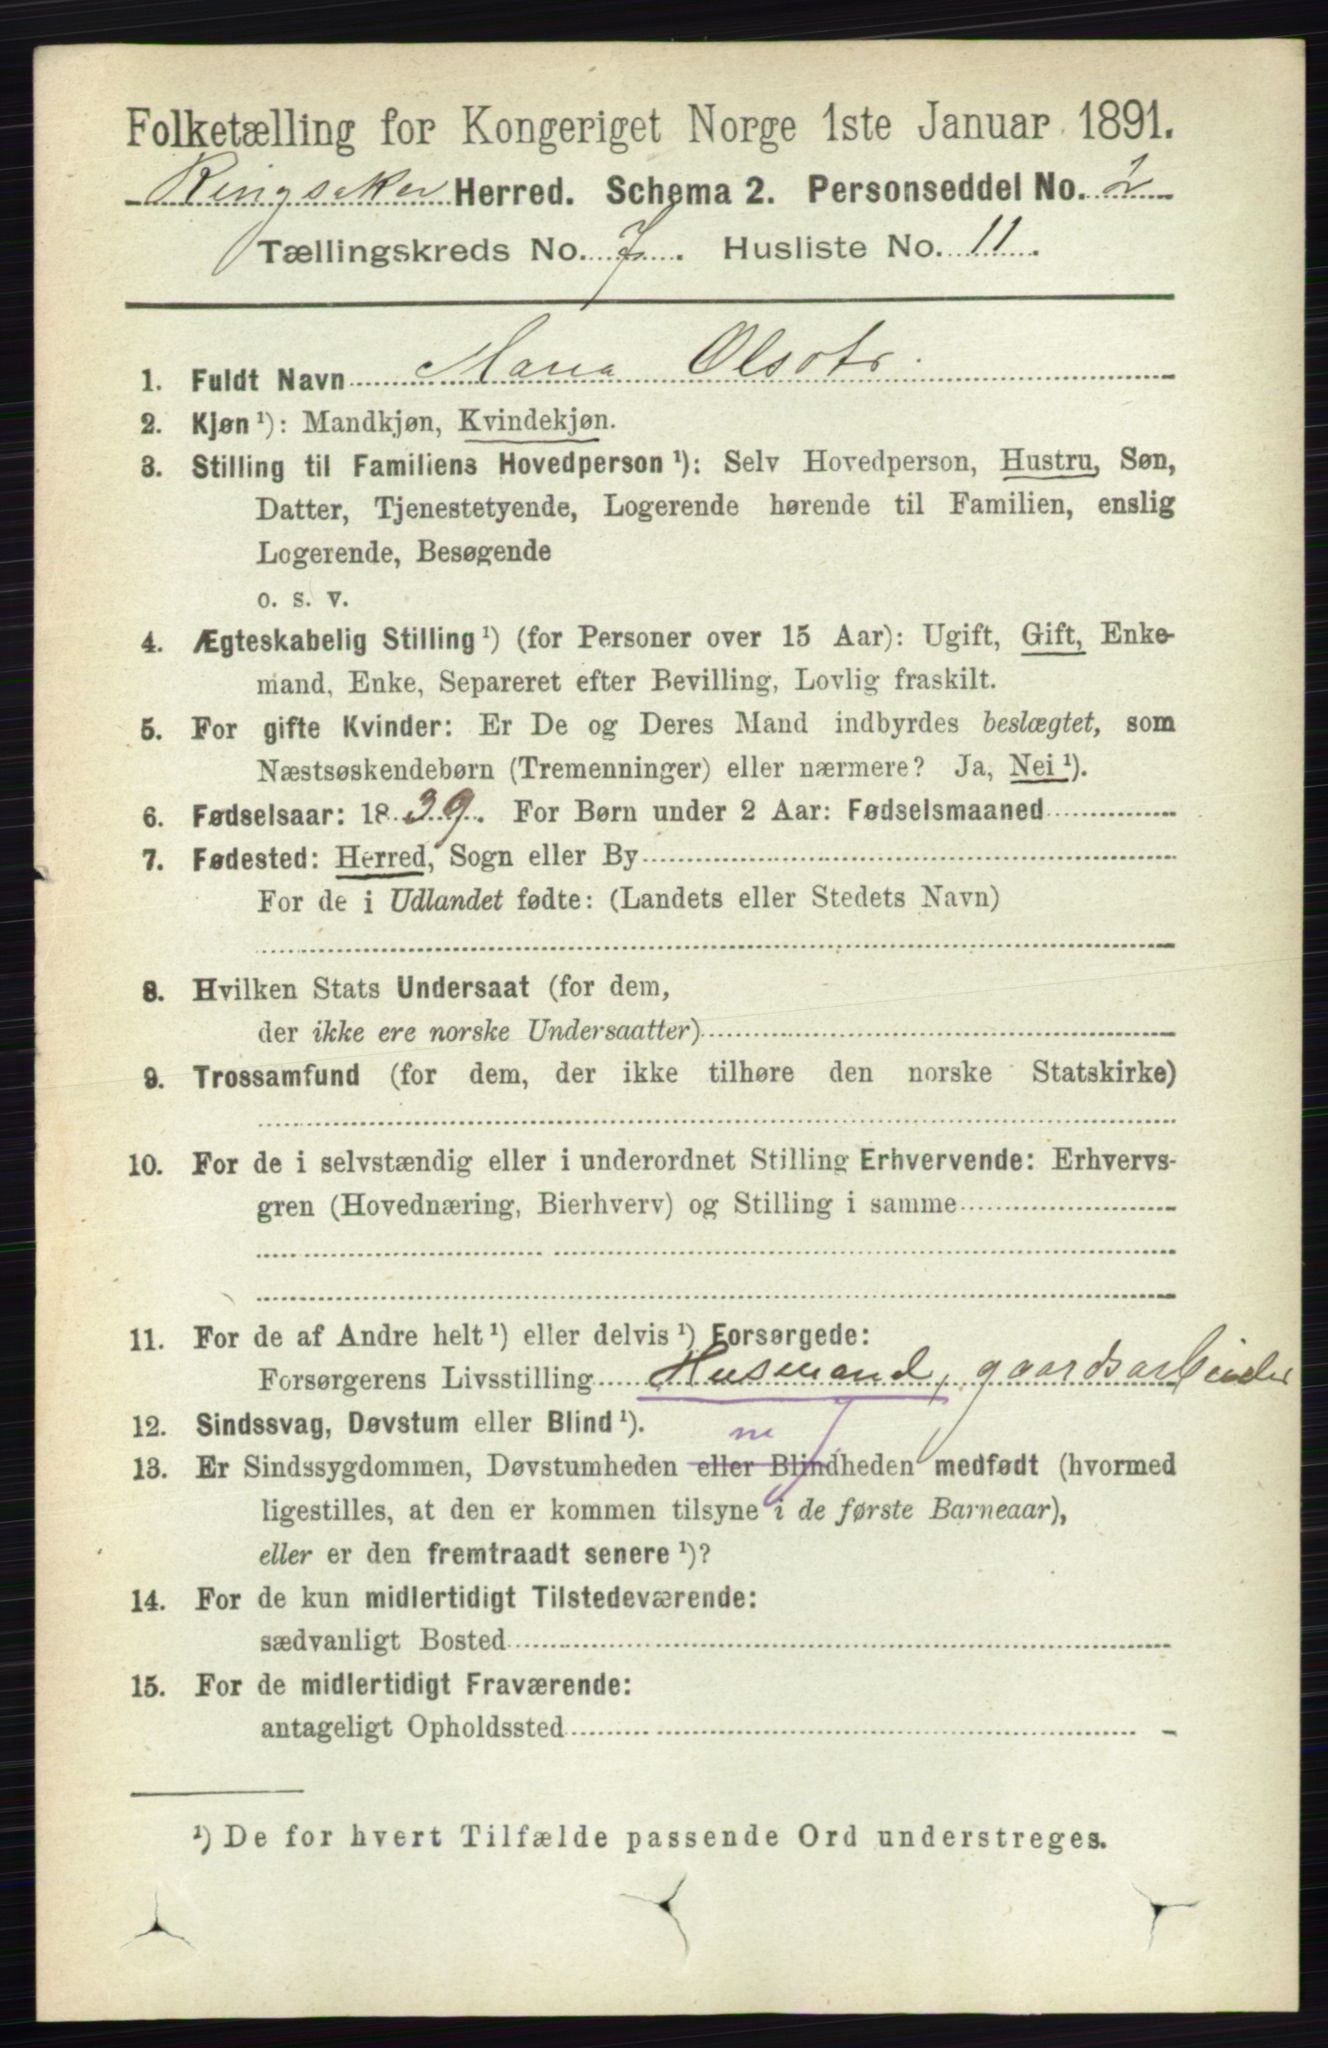 Folketælling for Kongeriget Norge 1ste Januar 1891.
Ringsaker Herred. Schema 2. Personseddel No. 2
Tællingskreds No. 7. Husliste No. 11.
1. Fuldt Navn Maria Olsdtr.
2. Kjøn ¹): Mandkjøn, Kvindekjøn.
3. Stilling til Familiens Hovedperson ¹): Selv Hovedperson, Hustru, Søn,
Datter, Tjenestetyende, Logerende hørende til Familien, enslig
Logerende, Besøgende
o. s. v.
4. Ægteskabelig Stilling ¹) (for Personer over 15 Aar): Ugift, Gift, Enke-
mand, Enke, Separeret efter Bevilling, Lovlig fraskilt.
5. For gifte Kvinder: Er De og Deres Mand indbyrdes beslægtet, som
Næstsøskendebørn (Tremenninger) eller nærmere? Ja, Nei ¹).
6. Fødselsaar: 1839. For Børn under 2 Aar: Fødselsmaaned
7. Fødested: Herred, Sogn eller By
For de i Udlandet fødte: (Landets eller Stedets Navn)
8. Hvilken Stats Undersaat (for dem,
der ikke ere norske Undersaatter)
9. Trossamfund (for dem, der ikke tilhøre den norske Statskirke)
10. For de i selvstændig eller i underordnet Stilling Erhvervende: Erhvervs-
gren (Hovednæring, Bierhverv) og Stilling i samme
11. For de af Andre helt ¹) eller delvis ¹) Forsørgede:
Forsørgerens Livsstilling Husmand, gaardsarbeider
12. Sindssvag, Døvstum eller Blind ¹).
13. Er Sindssygdommen, Døvstumheden eller Blindheden medfødt (hvormed
ligestilles, at den er kommen tilsyne i de første Barneaar),
eller er den fremtraadt senere ¹)?
14. For de kun midlertidigt Tilstedeværende:
sædvanligt Bosted
15. For de midlertidigt Fraværende:
antageligt Opholdssted
¹) De for hvert Tilfælde passende Ord understreges.